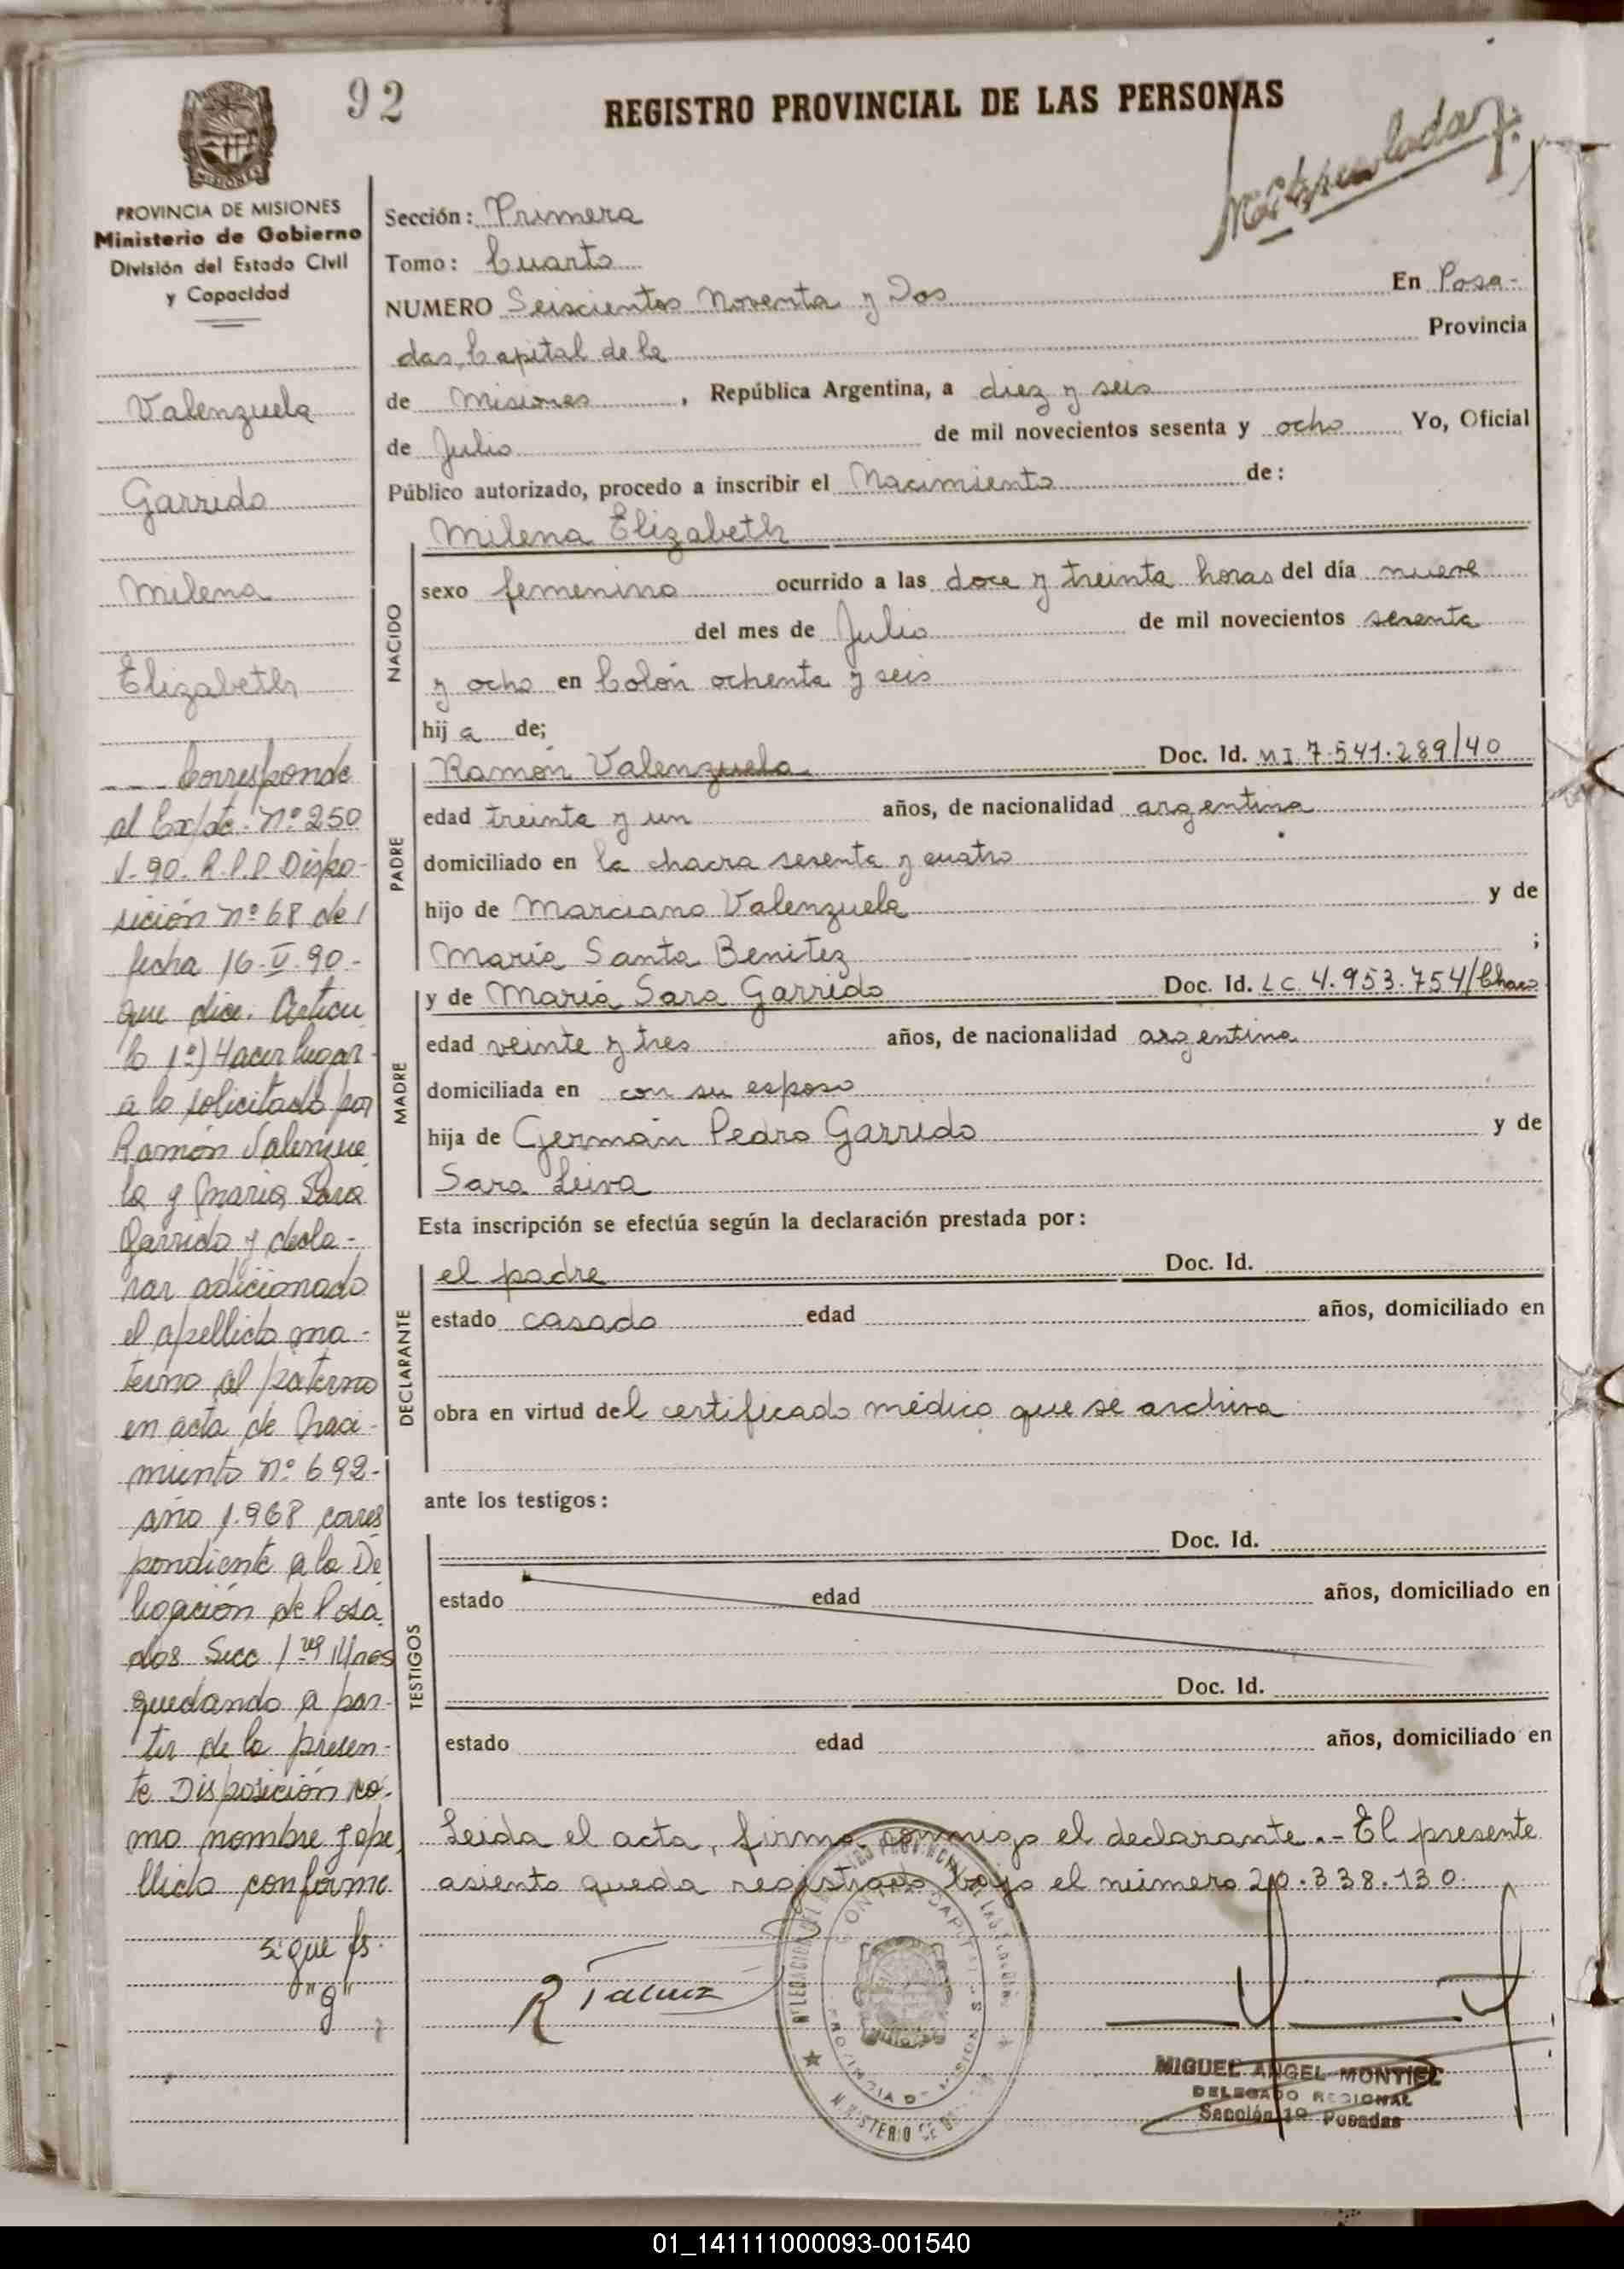 92
REGISTRO PROVINCIAL DE LAS PERSONAS
PROVINCIA DE MISIONES
Ministerio de Gobierno
División del Estado Civil
y Capacidad
Valenzuela
Garrido
Milena
Elizabeth
--- Corresponde
al Expte. Nº 250
V-90. R.P.P. Dispo-
sición nº 68 de
fecha 16-V-90-
que dice. Artícu
lo 1º) Hacer lugar
a lo solicitado por
Ramón Valenzue
la y María Sara
Garrido y decla-
rar adicionado
el apellido ma-
terno al paterno
en acta de Naci-
miento nº 692-
año 1.968 corres
pondiente a la De
legación de Posa
das Secc 1ra Mnes
quedando a par-
tir de la presen-
te Disposición co-
mo nombre y ape
llido conforme
sigue fs.
"g"
Sección: Primera
Tomo: Cuarto
NUMERO Seiscientos Noventa y Dos En Posa-
das, Capital de la Provincia
de Misiones, República Argentina, a diez y seis
de Julio de mil novecientos sesenta y ocho Yo, Oficial
Público autorizado, procedo a inscribir el Nacimiento de:
NACIDO
Milena Elizabeth
sexo femenino ocurrido a las doce y treinta horas del día nueve
del mes de Julio de mil novecientos sesenta
y ocho en Colón ochenta y seis
hij a de;
PADRE
Ramón Valenzuela Doc. Id. MI. 7.541.289/40
edad treinta y un años, de nacionalidad argentina
domiciliado en la chacra sesenta y cuatro
hijo de Marciano Valenzuela y de
María Santa Benitez ;
MADRE
y de María Sara Garrido Doc. Id. LC. 4.953.754/Chaco
edad veinte y tres años, de nacionalidad argentina
domiciliada en con su esposo
hija de Germán Pedro Garrido y de
Sara Leiva
Esta inscripción se efectúa según la declaración prestada por:
DECLARANTE
el padre Doc. Id.
estado casado edad años, domiciliado en
obra en virtud del certificado médico que se archiva
ante los testigos:
TESTIGOS
Doc. Id.
estado edad años, domiciliado en
Doc. Id.
estado edad años, domiciliado en
Leida el acta, firma conmigo el declarante.- El presente
asiento queda registrado bajo el número 20.338.130.
MIGUEL ANGEL MONTIEL
DELEGADO REGIONAL
Sección 1º Posadas
01_141111000093-001540